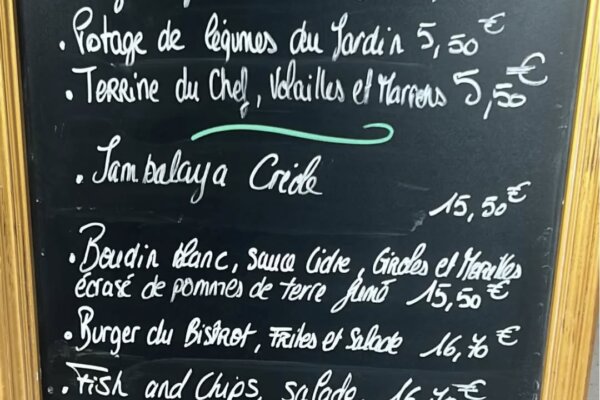 • Potage de légumes du Jardin 5,50€
• Terrine du Chef, Volailles et Marrons 5,50€
• Jambalaya Créole
15,50€
• Boudin blanc, Sauce Cidre, Giroles et Morilles
écrasé de pommes de terre fumé 15,50€
• Burger du Bistrot, Frites et Salade 16,70€
• Fish and Chips, salade, 16,70€